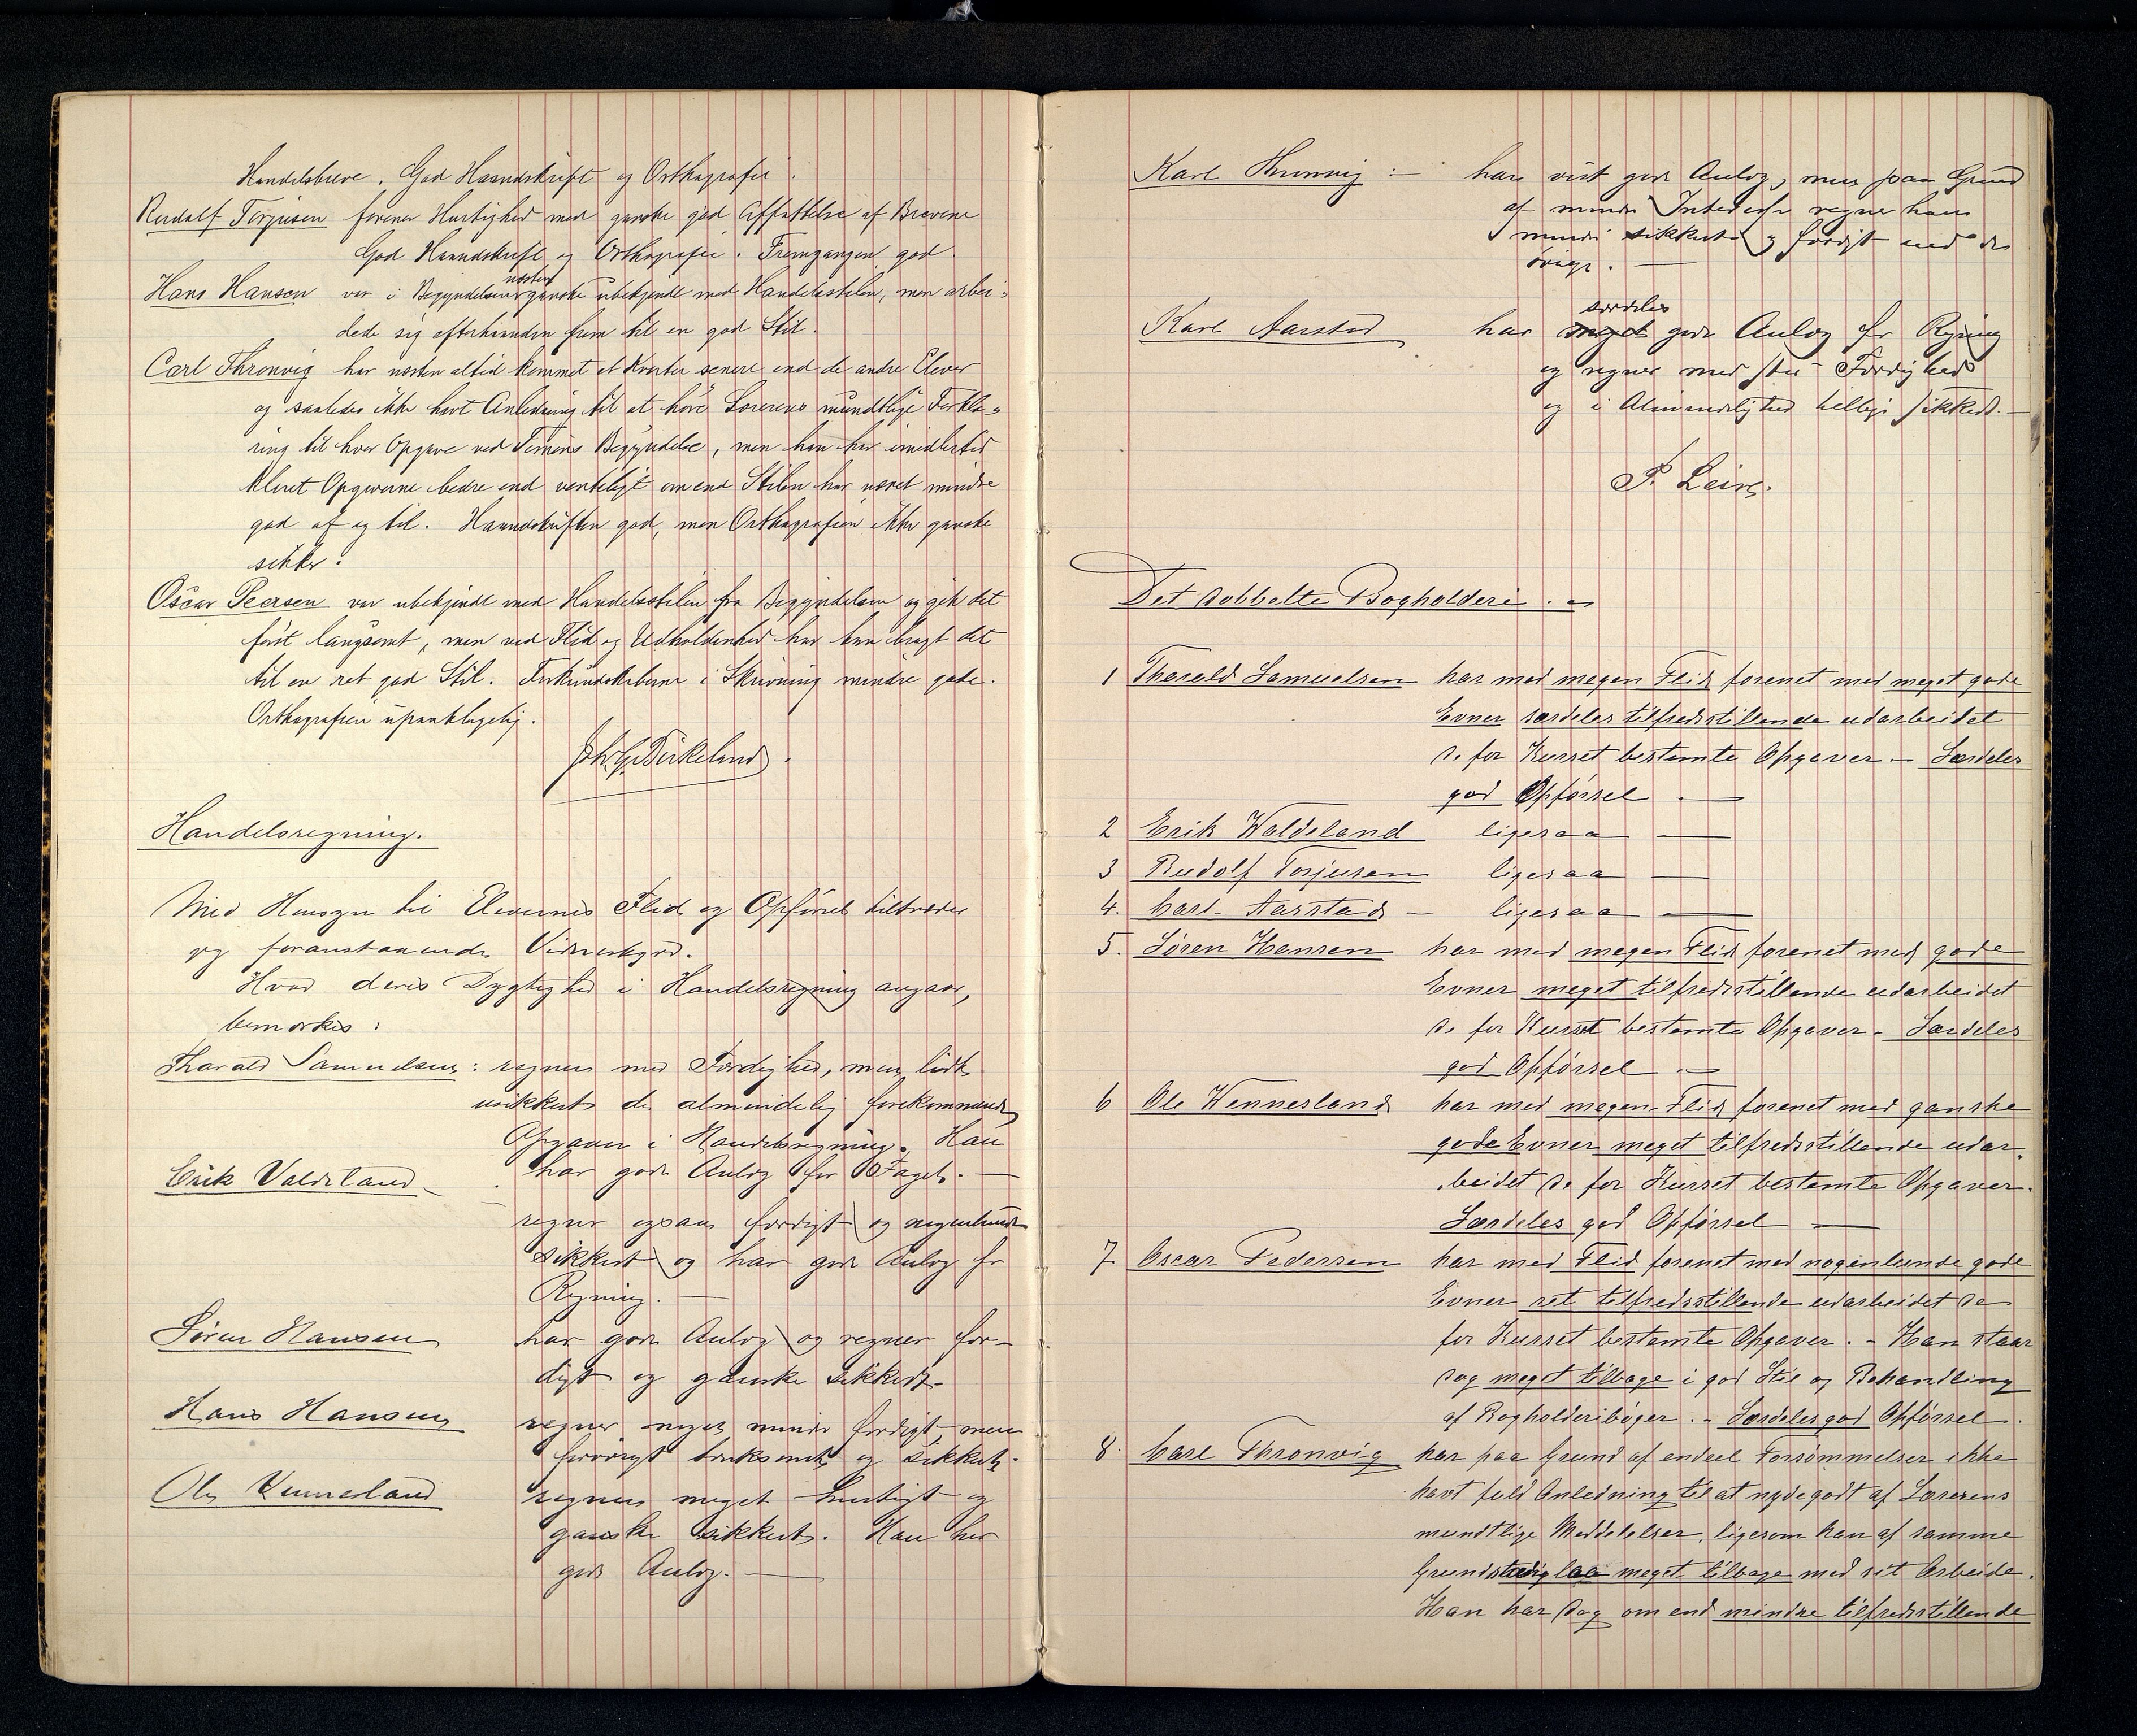 Handelsbreve. God Haandskrift og Orthografi.
Rudolf Torjusen forener Hurtighed med ganske god Affattelse af Brevene
God Haandskrift og Orthografi. Fremgangen god.
næsten
Hans Hansen var i Begyndelsen ganske ubekjendt med Handelsstilen, men arbei-
dede sig efterhaanden frem til en god Stil.
Carl Thronvig har næsten altid kommet et Kvarter senere end de andre Elever
og saaledes ikke havt Anledning til at høre Lærerens mundtlige Forkla-
ring til hver Opgave ved Timens Begyndelse, men han har imidlertid
klaret Opgaverne bedre end venteligt om end Stilen har været mindre
god af og til. Haandskriften god, men Orthografien ikke ganske
sikker.
Oscar Peersen var ubekjendt med Handelsstilen fra Begyndelsen og gik det
først langsomt, men ved Flid og Udholdenhed har han bragt det
til en ret god Stil. Forkundskaberne i Skrivning mindre gode.
Orthografien upaaklagelig.
Joh. G. Birkeland.
Handelsregning.
Med Hensyn til Elevernes Flid og Opførsel tiltræder
jeg foranstaaende Vidnesbyrd.
Hvad deres Dygtighed i Handelsregning angaar,
bemærkes:
Tharald Samuelsen: regner med Færdighed, men lidt
usikkert de almindelig forekommende
Opgaver i Handelsregning. Han
har gode Anlæg for Faget. —
Erik Valdeland —
regner ogsaa færdigt og nogenlunde
sikkert og har gode Anlæg for
Regning. —
Søren Hansen har gode Anlæg og regner fær-
digt og ganske sikkert.
Hans Hansen regner noget mindre færdigt, men
forøvrigt tænksomt og sikkert.
Ole Vennesland regner meget hurtigt og
ganske sikkert. Han har
gode Anlæg. —
Karl Thronvig :— har vist gode Anlæg, men paa Grund
af mindre Interesse regner han
mindre sikkert og færdigt end de
øvrige. —
særdeles
Karl Aarstad har meget gode Anlæg for Regning
og regner med stor Færdighed
og i Almindelighed tillige sikkert. —
P. Leire.
Det dobbelte Bogholderi. —
1 Tharald Samuelsen har med megen Flid forenet med meget gode
Evner særdeles tilfredsstillende udarbeidet
de for Kurset bestemte Opgaver. — Særdeles
god Opførsel. —
2 Erik Waldeland ligesaa —
3 Rudolf Torjusen ligesaa —
4. Carl Aarstad — ligesaa —
5. Søren Hansen har med megen Flid forenet med gode
Evner meget tilfredsstillende udarbeidet
de for Kurset bestemte Opgaver. Særdeles
god Opførsel. —
6 Ole Wennesland har med megen Flid forenet med ganske
gode Evner meget tilfredsstillende udar-
beidet de for Kurset bestemte Opgaver.
Særdeles god Opførsel —
7. Oscar Pedersen har med Flid forenet med nogenlunde gode
Evner ret tilfredsstillende udarbeidet de
for Kurset bestemte Opgaver. - Han staar
dog meget tilbage i god Stil og Behandling
af Bogholderibøger. - Særdeles god Opførsel.
8. Carl Thronvig har paa Grund af endeel Forsømmelser ikke
havt fuld Anledning til at nyde godt af Lærerens
mundtlige Meddelelser, ligesom han af samme
Grund stadig laa meget tilbage med sit Arbeide.
Han har dog om end mindre tilfredsstillende